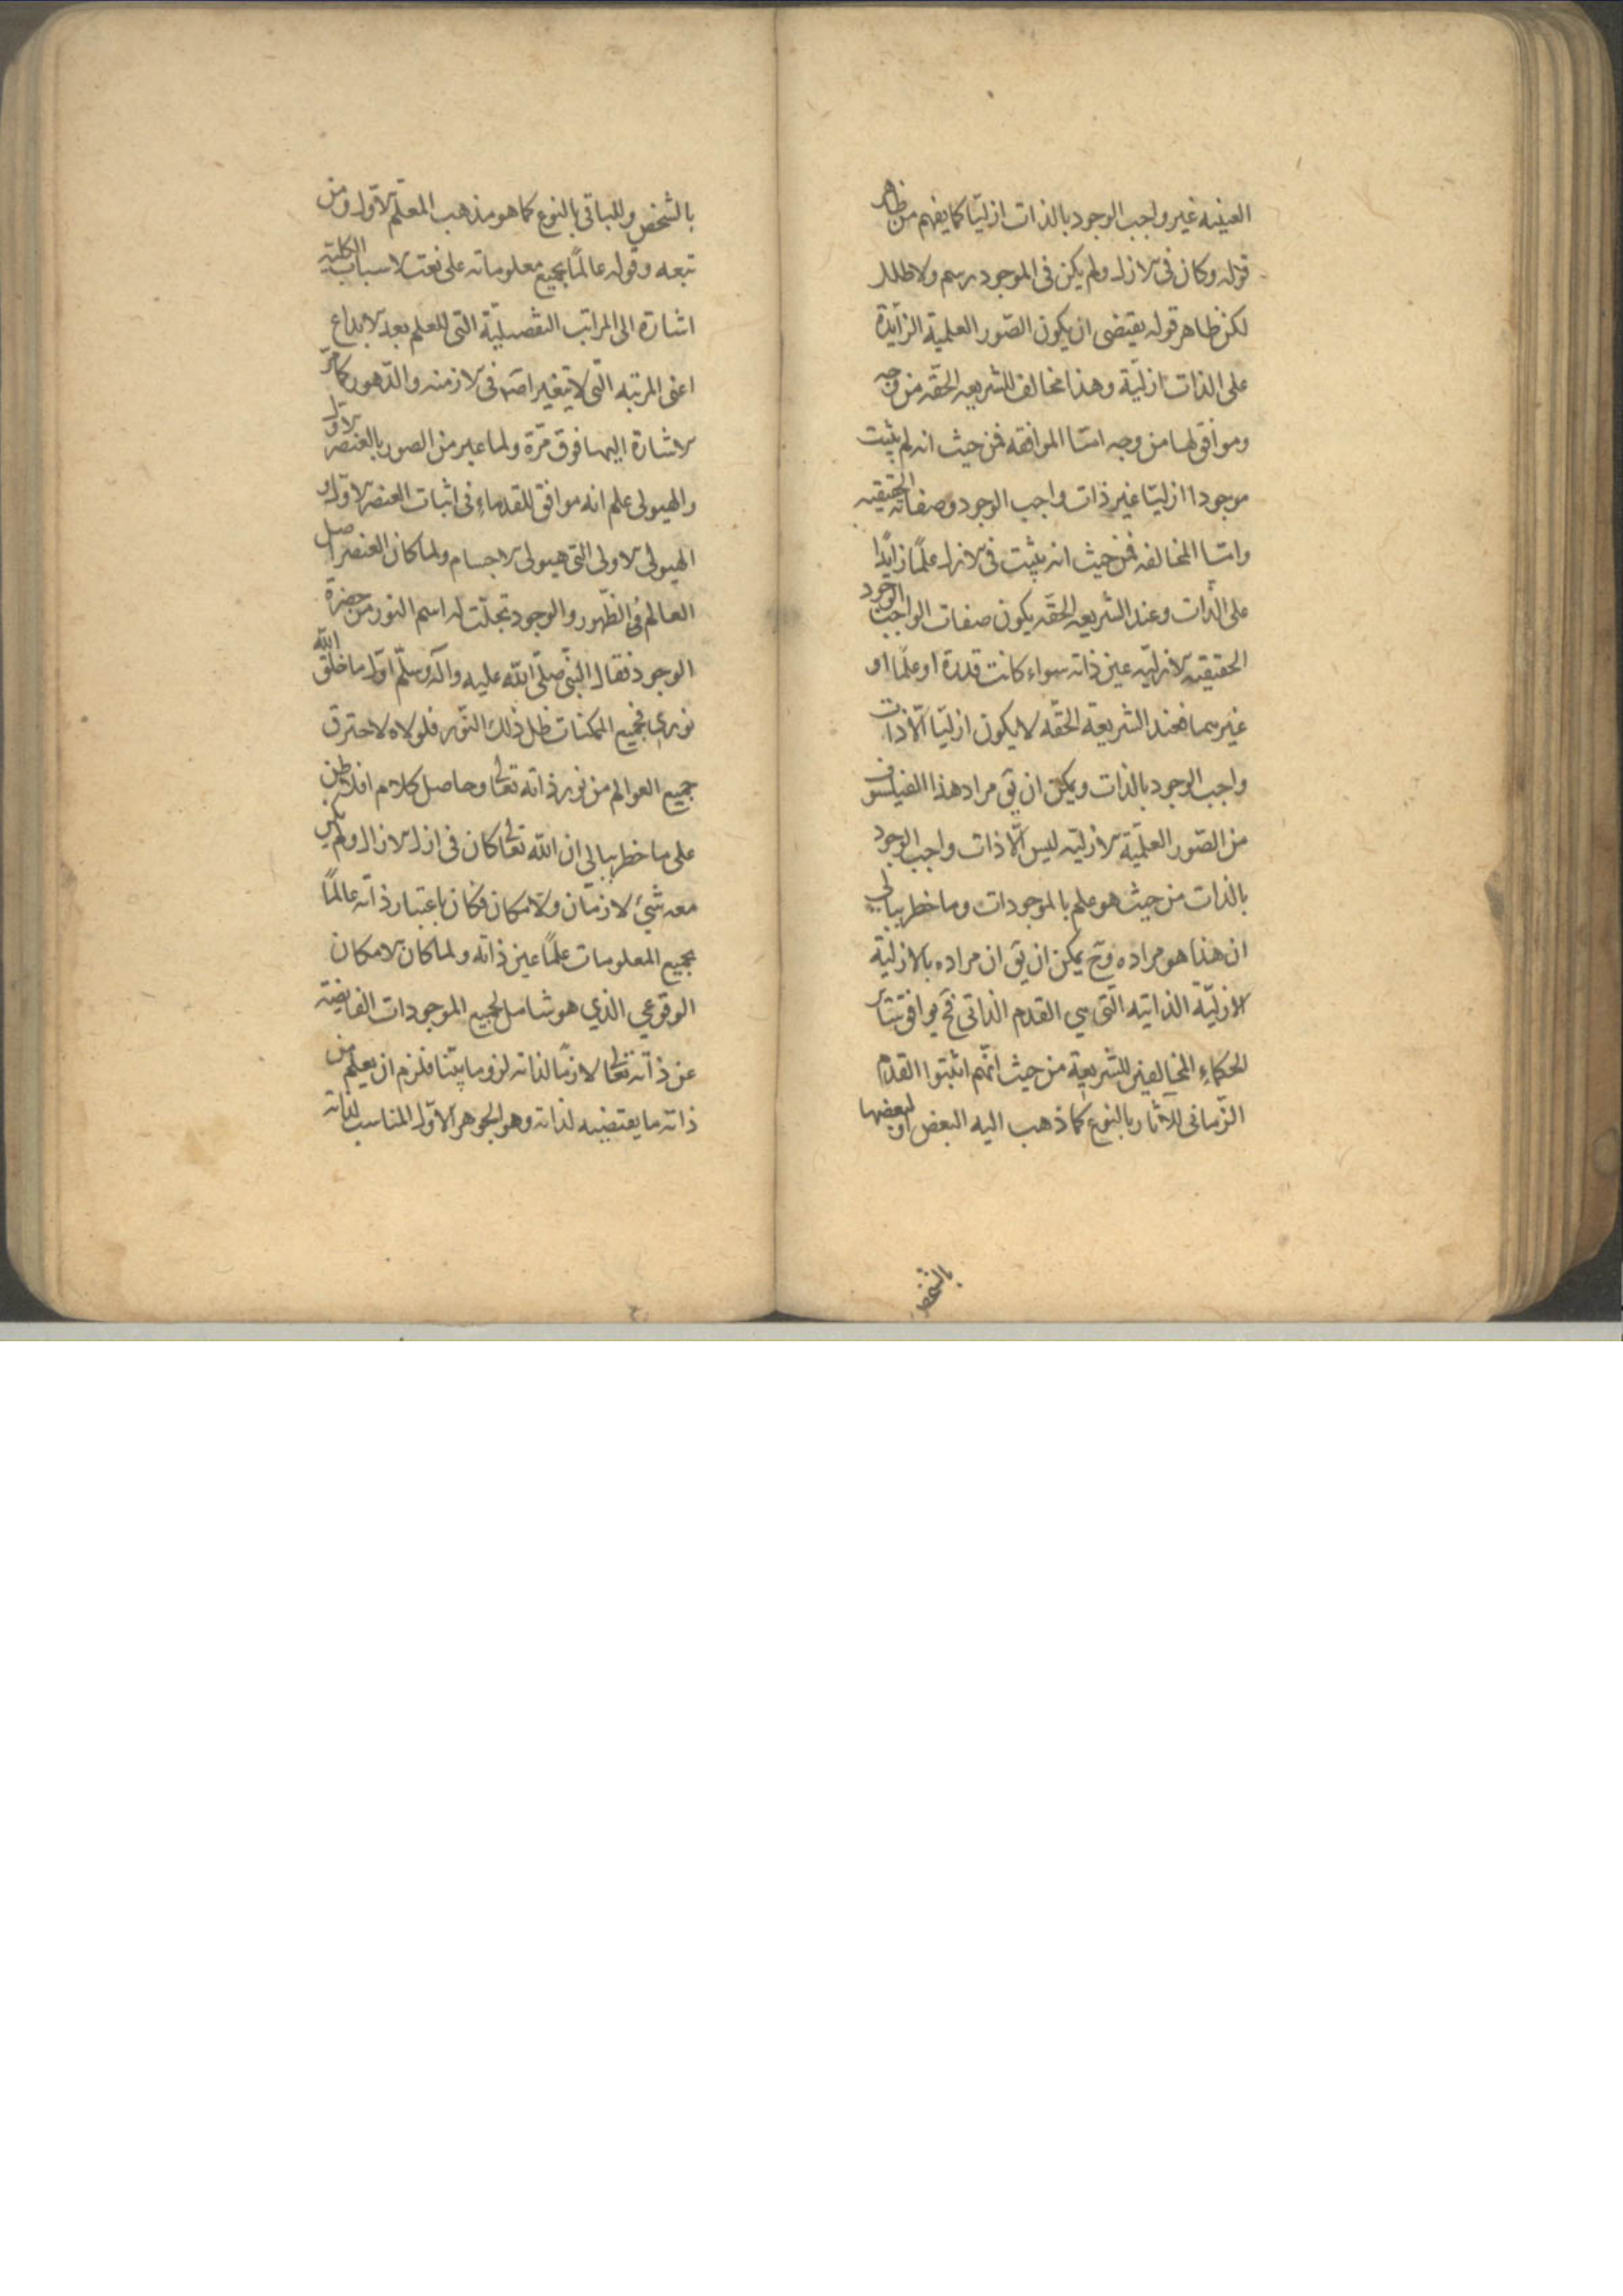 العينيه غير واجب الوجود بالذات ازليّا كما يفهم من ظاهر
قوله وكان فى الازل ولم يكن فى الموجود رسم ولا طلل
لكن ظاهر قوله يقتضى ان يكون الصّور العلمية الزايدة
على الذات ازليّة وهذا مخالف للشريعه الحقّه من وجه
وموافق لها من وجه امّا الموافقه فمن حيث انه لم يثبت
موجودا ازليّا غير ذات واجب الوجود وصفاته الحقيقيه
وامّا المخالفه فمن حيث انه يثبت فى الازل علمًا زايدًا
على الذّات وعند الشريعه الحقّه يكون صفات الواجب الوجود
الحقيقيه الازليّه عين ذاته سواء كانت قدرة او علمًا او
غيرهما فعند الشريعة الحقّه لا يكون ازليّا الّا ذات
واجب الوجود بالذات ويمكن ان يق مراد هذا الفيلسوف
من الصّور العلميّة الازليّه ليس الّا ذات واجب الوجود
بالذات من حيث هو علم بالموجودات وما خطر ببالي
ان هذا هو مراده وح يمكن ان يق ان مراده بالازليّة
الازليّة الذاتيه الّتى هي القدم الذاتى فح يوافق سائر
الحكماء المخالفين للشريعة من حيث انّهم اثبتوا القدم
الزّمانى للآثار بالنوع كما ذهب اليه البعض او لبعضها
بالشخص
بالشخص وللباقى بالنوع كما هو مذهب المعلّم الاوّل ومن
تبعه وقوله عالمًا بجميع معلوماته على نعت الاسباب الكليّه
اشارة الى المراتب التفصيليّة التى للعلم بعد الابداع
اعنى المرتبه الّتى لا يتغير اصلا فى الازمنه والدّهور كما مرّ
الاشارة اليها فوق مرّة ولما عبر من الصور بالعنصر الاوّل
والهيولى علم انه موافق للقدماء فى اثبات العنصر الاوّل و
الهيولى الاولى التى هيولى الاجسام ولما كان العنصر اصل
العالم فى الظّهور والوجود تجلّت له اسم النور من حضرة
الوجود فقال النبّى صلّى الله عليه وآله وسلّم اوّل ما خلق الله
نوري فجميع الممكنات ظل ذلك النّور فلولاه لاحترق
جميع العوالم من نور ذاته تعالى وحاصل كلام افلاطن
على ما خطر ببالي ان الله تعالى كان فى ازل الازال ولم يكن
معه شيئ لا زمان ولا مكان فكان باعتبار ذاته عالمًا
بجميع المعلومات علمًا عين ذاته ولما كان الامكان
الوقوعي الذي هو شامل لجميع الموجودات الفايضة
عن ذاته تعالى لازمًا لذاته لزوما بيّنا فلزم ان يعلم من
ذاته ما يقتضيه لذاته وهو الجوهر الاوّل المناسب لذاته